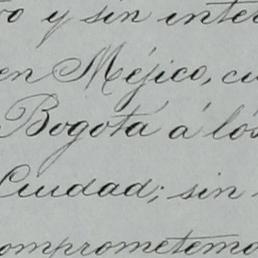 y sin inter
en Méjico, cu
Bogotá á los
Ciudad; sin
comprometemo